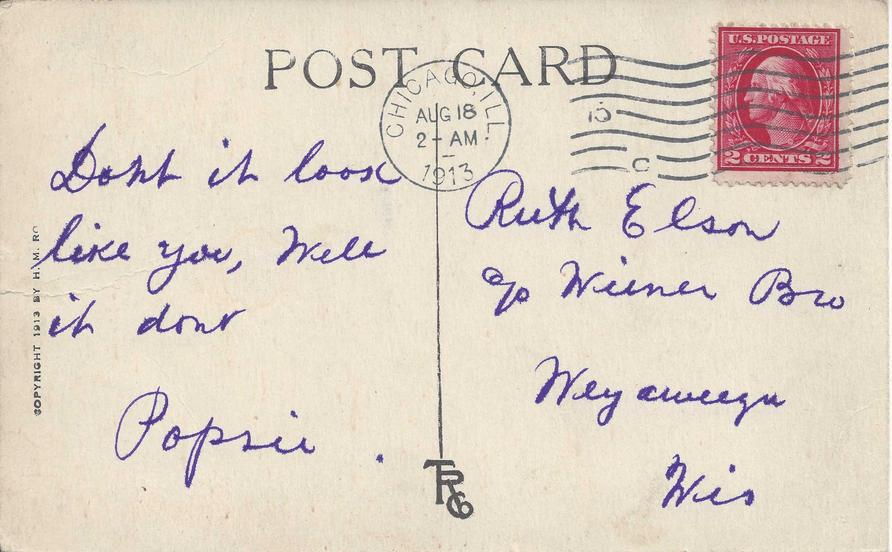 POST CARD
CHICAGO, ILL.
AUG 18
2 - AM
1913
15
C
U.S. POSTAGE
2 CENTS 2
Dont it look
like you, Well
it dont
Popsie
Ruth Elson
c/o Wiener Bro
Weyauwega
Wis
COPYRIGHT 1913 BY H. M. RO
TRG